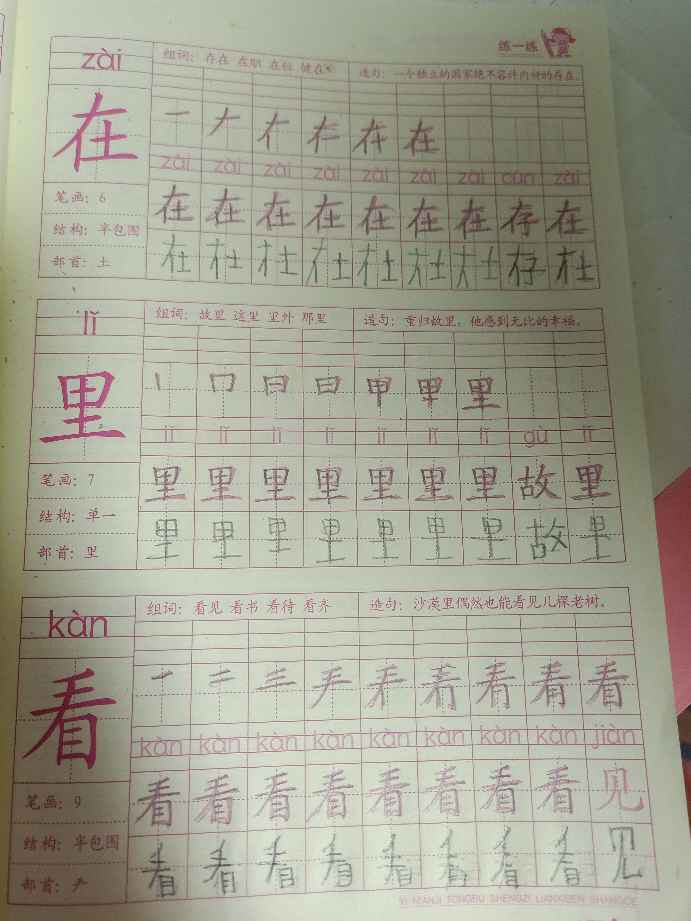 练一练
zài
组词：存在 在职 在位 健在
造句：一个独立的国家绝不容许内奸的存在。
在
一 ナ 𠂇 在 在 在
zài zài zài zài zài zài zài cún zài
笔画：6
在 在 在 在 在 在 在 存 在
结构：半包围
部首：土
在 在 在 在 在 在 在 存 在
lǐ
组词：故里 这里 里外 那里
造句：重归故里，他感到无比的幸福。
里
丨 冂 日 日 甲 甲 里
lǐ lǐ lǐ lǐ lǐ lǐ lǐ gù lǐ
笔画：7
里 里 里 里 里 里 里 故 里
结构：单一
部首：里
里 里 里 里 里 里 里 故 里
kàn
组词：看见 看书 看待 看齐
造句：沙漠里偶然也能看见几棵老树。
看
看
kàn kàn kàn kàn kàn kàn kàn kàn jiàn
笔画：9
看 看 看 看 看 看 看 看 见
结构：半包围
部首：龵
看 看 看 看 看 看 看 看 见
YI NIANJI TONGBU SHENGZI LIANXIBEN SHANGCE